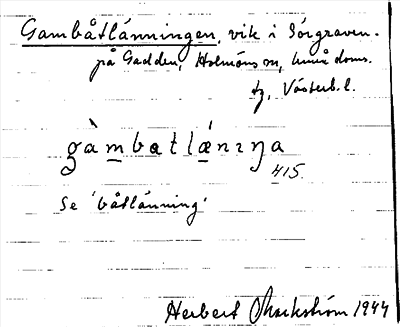 Gambåtlänningen, vik i Sörgraven.
på Gadden, Holmöns sn, Umeå doms.
tg, Västerb. l.
gàmbatlǽnıŋa
415.
Se 'båtlänning'
Herbert Markström 1944